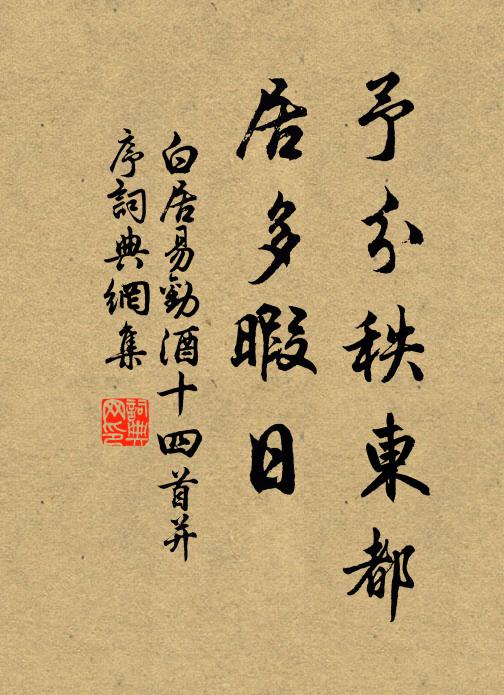 予分秩東都
居多暇日
白居易勸酒十四首并
序詞典網集
詞典
网印